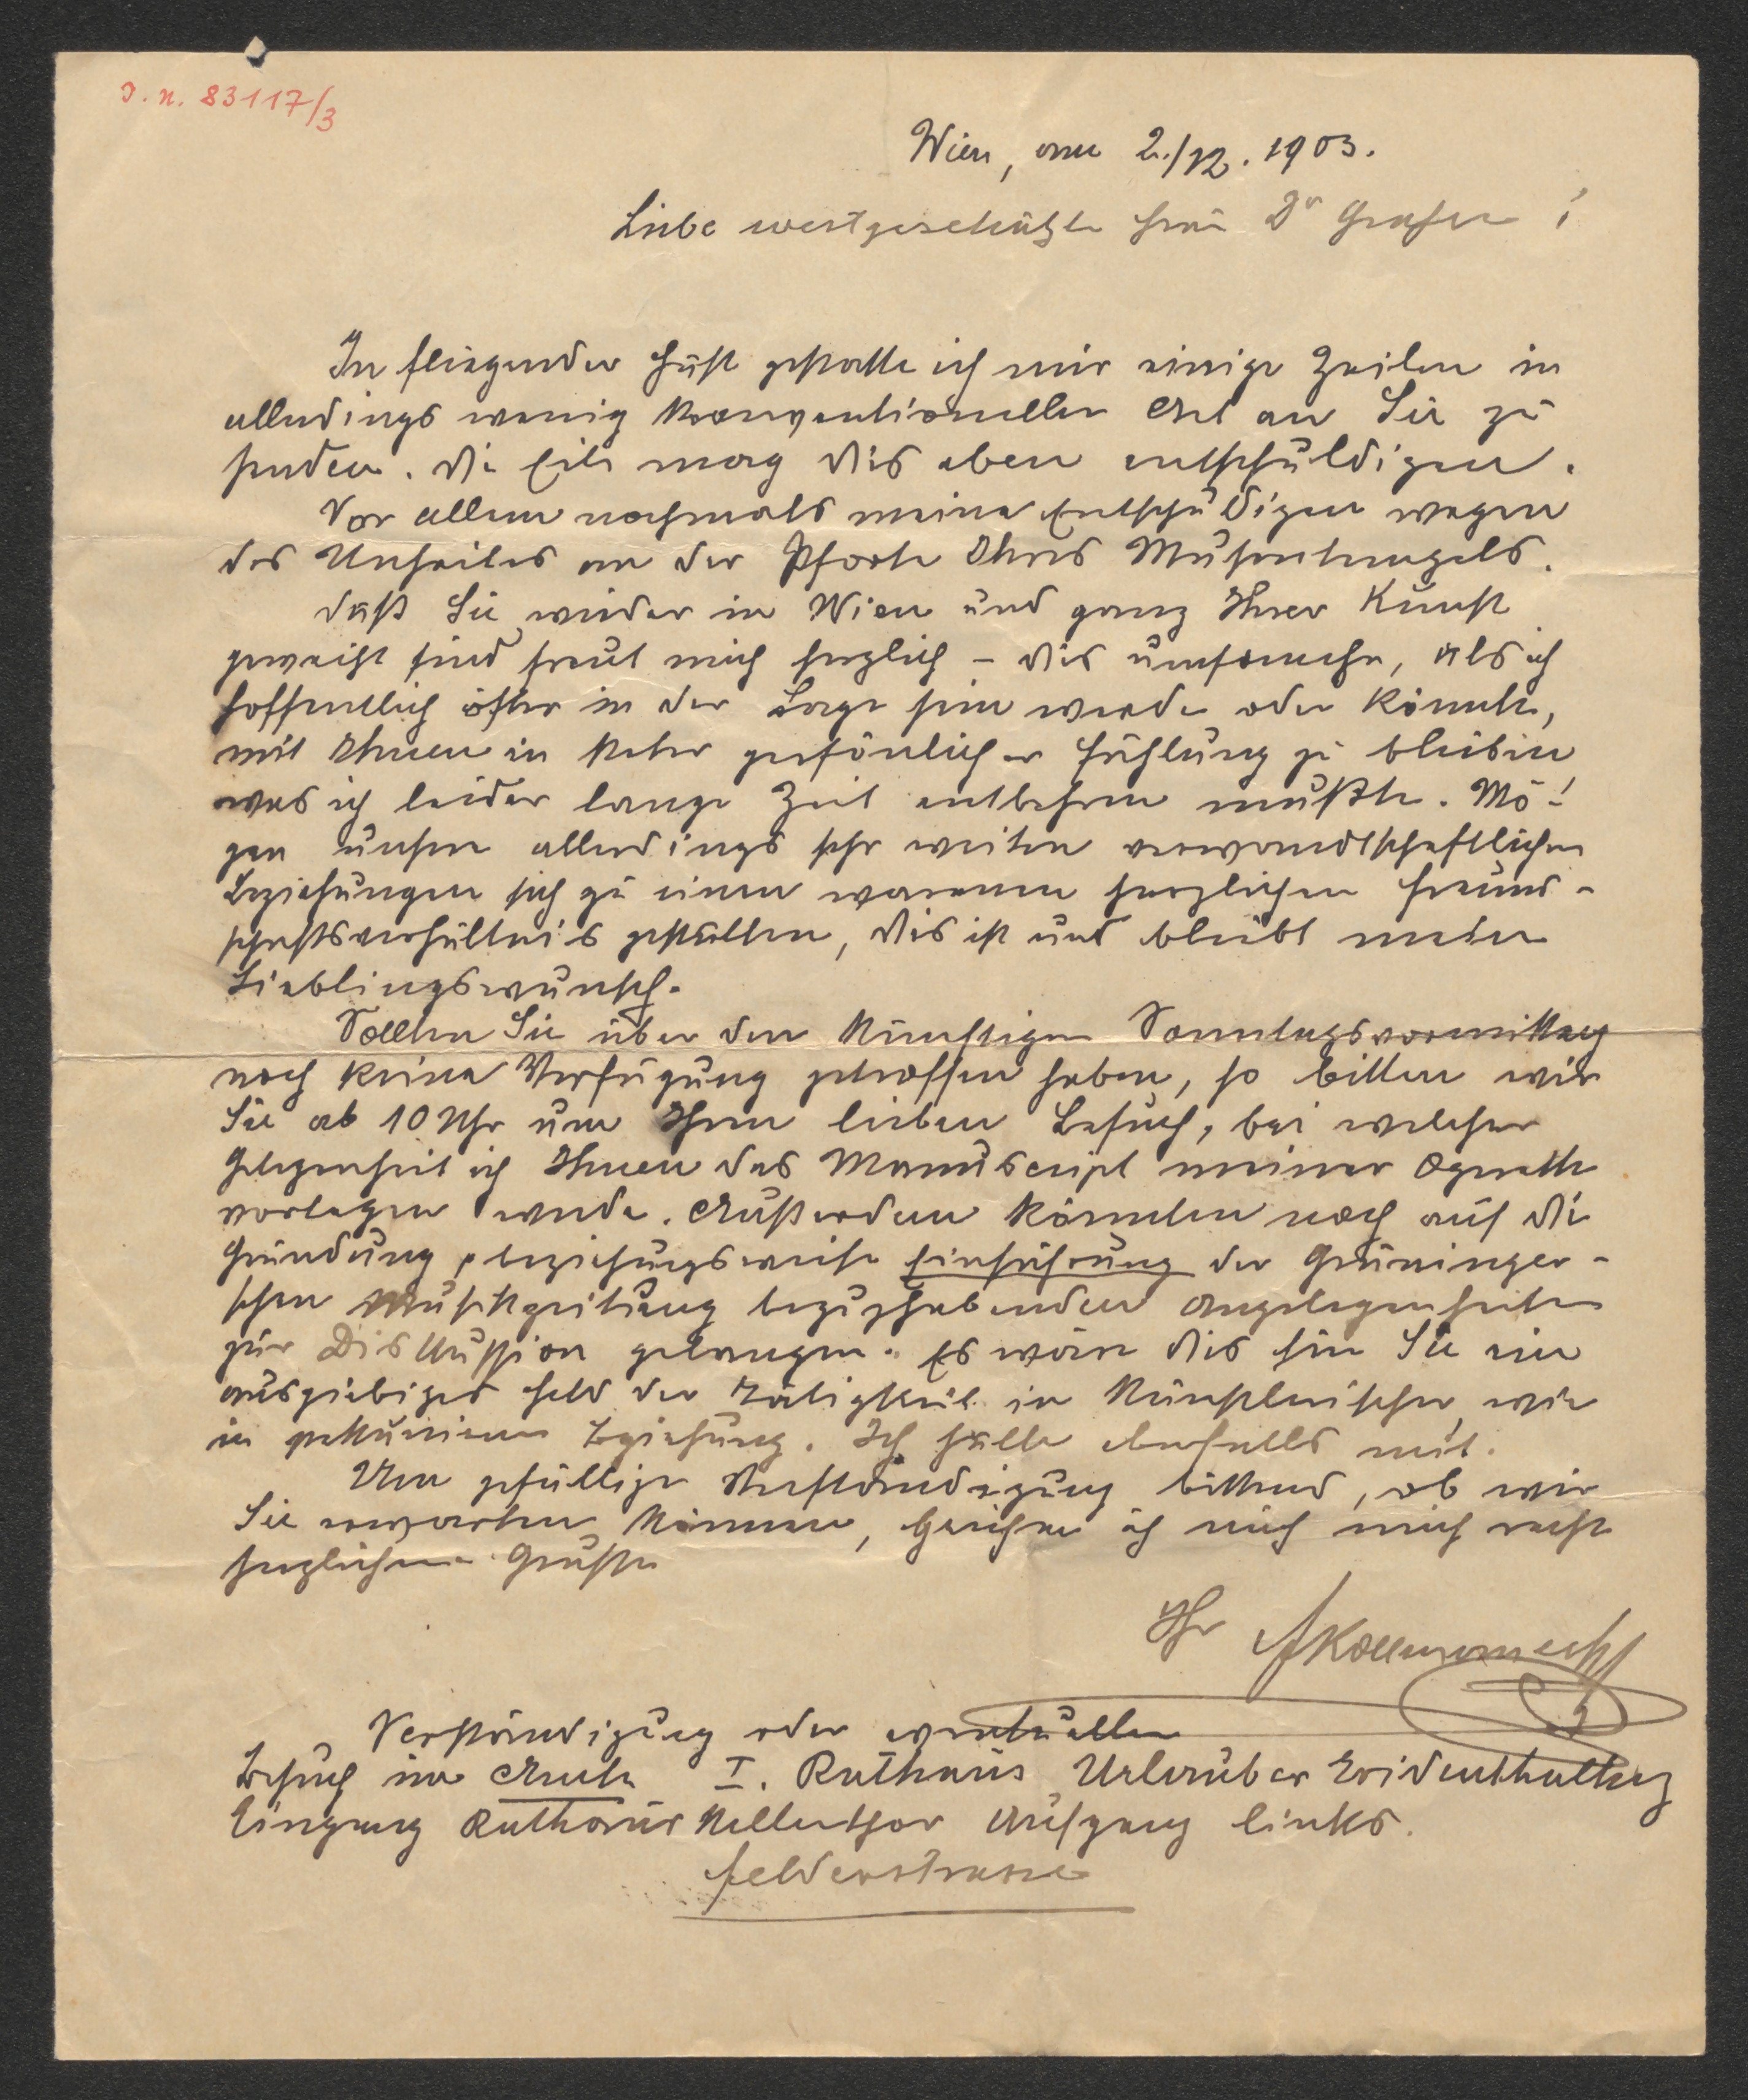 I. N. 83117/3
Wien, am 2./12. 1903.
Liebe wertgeschätzte Frau Dr
In fliegender Hast gestatte ich mir einige Zeilen in
allerdings wenig konventioneller Art an Sie zu
senden. Die Eile mag dies eben entschuldigen.
Vor allem nochmals meine Entschuldigen wegen
des Unheiles an der Pforte Ihres Musentempels.
Daß Sie wieder in Wien und ganz Ihrer Kunst
geweiht sind freut mich herzlich – dies umsomehr, als ich
hoffentlich öfter in der Lage sein werde oder könnte,
mit Ihnen in steter persönlicher Fühlung zu bleiben
was ich leider lange Zeit entbehren mußte. Mö-
gen unsere allerdings sehr weiten verwandtschaftlichen
Beziehungen sich zu einem warmen herzlichen Freund-
schaftsverhältnis gestalten, dies ist und bleibt mein
Lieblingswunsch.
Sollten Sie über den künftigen Sonntagsvormittag
noch keine Verfügung getroffen haben, so bitten wir
Sie ab 10 Uhr um Ihren lieben Besuch, bei welcher
Gelegenheit ich Ihnen das Manuscript meiner Operette
vorlegen werde. Außerdem könnten noch auf die
Gründung, beziehungsweise Einführung der Grüninger-
schen Musikzeitung bezughabenden Angelegenheiten
zur Diskussion gelangen. Es wäre dies für Sie ein
ausgiebiges Feld der Tätigkeit in künstlerischer, wie
in pekuniärer Beziehung. Ich halte ebenfalls mit.
Um gefällige Verständigung bittend, ob wir
Sie erwarten können, zeichne ich mich mich recht
herzlichen Grüßen
Ihr
Verständigung oder eventuellen
Besuch im Amte I. Rathaus
Eingang Rathauskellerthor Aufgang links.
Felderstrasse